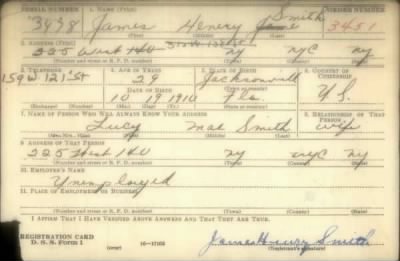 SERIAL NUMBER 1. NAME (Print) ORDER NUMBER
3498 James Henery Smith 3451
(First) (Middle) (Last)
2. ADDRESS (Print)
225 West 140 ny NYC ny
(Number and street or R. F. D. number) (Town) (County) (State)
3. TELEPHONE 4. AGE IN YEARS 5. PLACE OF BIRTH 6. COUNTRY OF CITIZENSHIP
159 W 121 St
29 Jacksonville
DATE OF BIRTH
10 19 1910 Fla. U.S.
(Exchange) (Number) (Mo.) (Day) (Yr.) (State or country)
7. NAME OF PERSON WHO WILL ALWAYS KNOW YOUR ADDRESS 8. RELATIONSHIP OF THAT PERSON
Lucy Mae Smith Wife
(Mr., Mrs., Miss) (First) (Middle) (Last)
9. ADDRESS OF THAT PERSON
225 West 140 ny NYC ny
(Number and street or R. F. D. number) (Town) (County) (State)
10. EMPLOYER'S NAME
Unemployed
11. PLACE OF EMPLOYMENT OR BUSINESS
(Number and street or R. F. D. number) (Town) (County) (State)
I AFFIRM THAT I HAVE VERIFIED ABOVE ANSWERS AND THAT THEY ARE TRUE.
REGISTRATION CARD
D. S. S. Form 1 (over) 16—17105 James Henry Smith
(Registrant's signature)